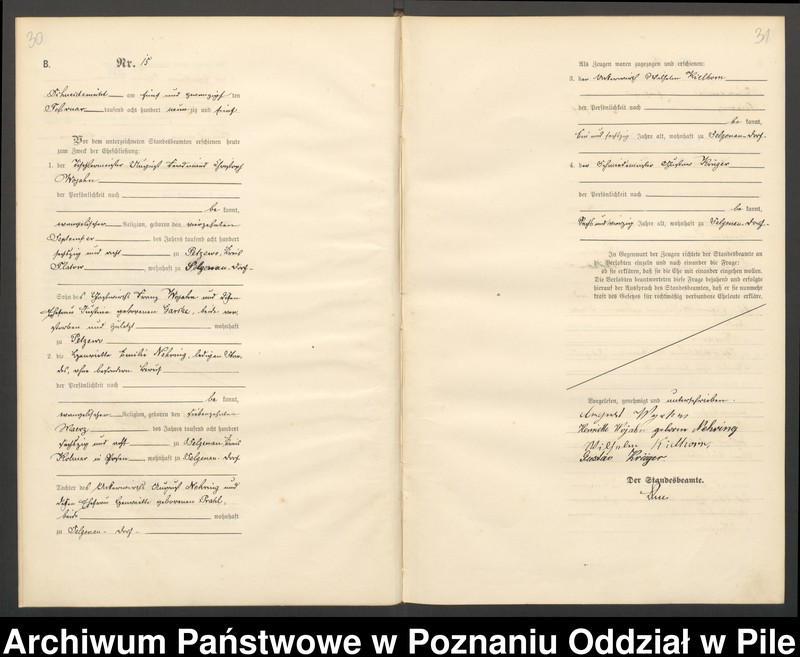 30
B. Nr. 15
Schneidemühl am fünf und zwanzigsten
Februar tausend acht hundert neunzig und fünf
Vor dem unterzeichneten Standesbeamten erschienen heute
zum Zweck der Eheschließung:
1. der Tischlermeister August Ferdinand
Wojahn
der Persönlichkeit nach
be kannt,
evangelischer Religion, geboren den vierzehnten
September des Jahres tausend acht hundert
sechszig und acht zu Petzewo, Kreis
Flatow, wohnhaft zu Selgenau-Dorf
Sohn des Gastwirths Franz Wojahn und dessen
Ehefrau Justine geborenen Garske, beide ver-
storben und zuletzt wohnhaft
zu Petzewo
2. die Henriette Emilie Nehring, ledigen Stan-
des, ohne besonderen Beruf
der Persönlichkeit nach
be kannt,
evangelischer Religion, geboren den siebenzehnten
Maerz des Jahres tausend acht hundert
sechszig und acht zu Selgenau, Kreis
Kolmar in Posen, wohnhaft zu Selgenau-Dorf
Tochter des Ackerwirths August Nehring und
dessen Ehefrau Henriette geborenen Prahl,
beide wohnhaft
zu Selgenau-Dorf
31
Als Zeugen waren zugezogen und erschienen:
3. der Ackerwirth Wilhelm Kielhorn
der Persönlichkeit nach
be kannt,
Jahre alt, wohnhaft zu Selgenau-Dorf
4. der Schmiedemeister Gustav Krüger
der Persönlichkeit nach
be kannt,
sechs und zwanzig Jahre alt, wohnhaft zu Selgenau-Dorf
In Gegenwart der Zeugen richtete der Standesbeamte an
die Verlobten einzeln und nach einander die Frage:
ob sie erklären, daß sie die Ehe mit einander eingehen wollen.
Die Verlobten beantworteten diese Frage bejahend und erfolgte
hierauf der Ausspruch des Standesbeamten, daß er sie nunmehr
kraft des Gesetzes für rechtmäßig verbundene Eheleute erkläre.
Vorgelesen, genehmigt und unterschrieben.
August Wojahn
Henriette Wojahn geborene Nehring
Wilhelm Kielhorn,
Gustav Krüger
Der Standesbeamte.
Archiwum Państwowe w Poznaniu Oddział w Pile